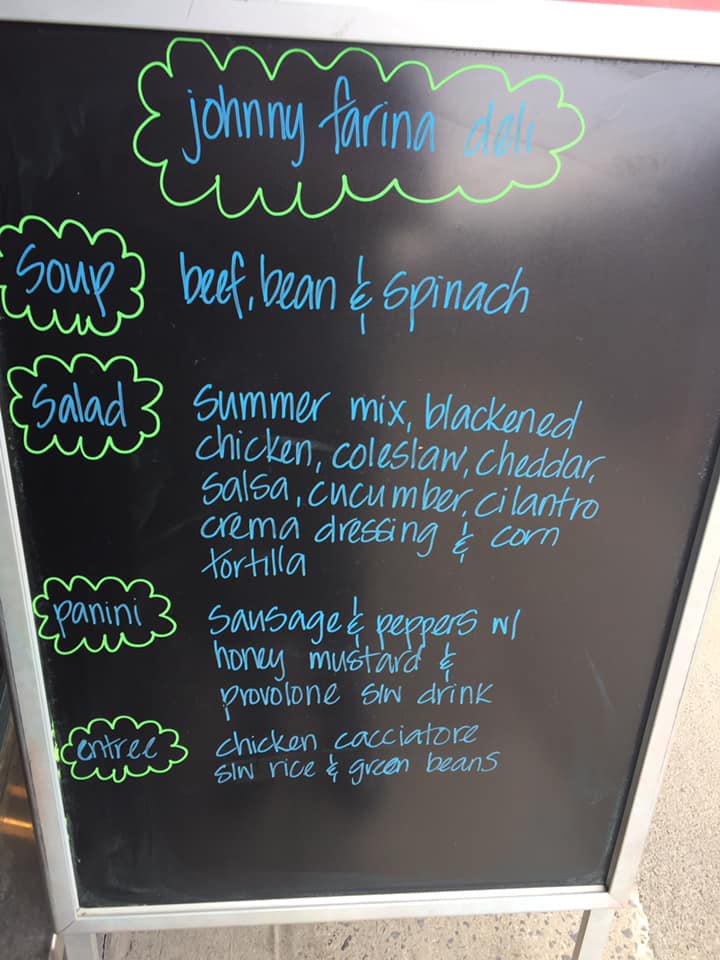 johnny farina deli
Soup beef, bean & spinach
Salad summer mix, blackened
chicken, coleslaw, cheddar,
salsa, cucumber, cilantro
crema dressing & corn
tortilla
panini sausage & peppers w/
honey mustard &
provolone s/w drink
entree chicken cacciatore
s/w rice & green beans